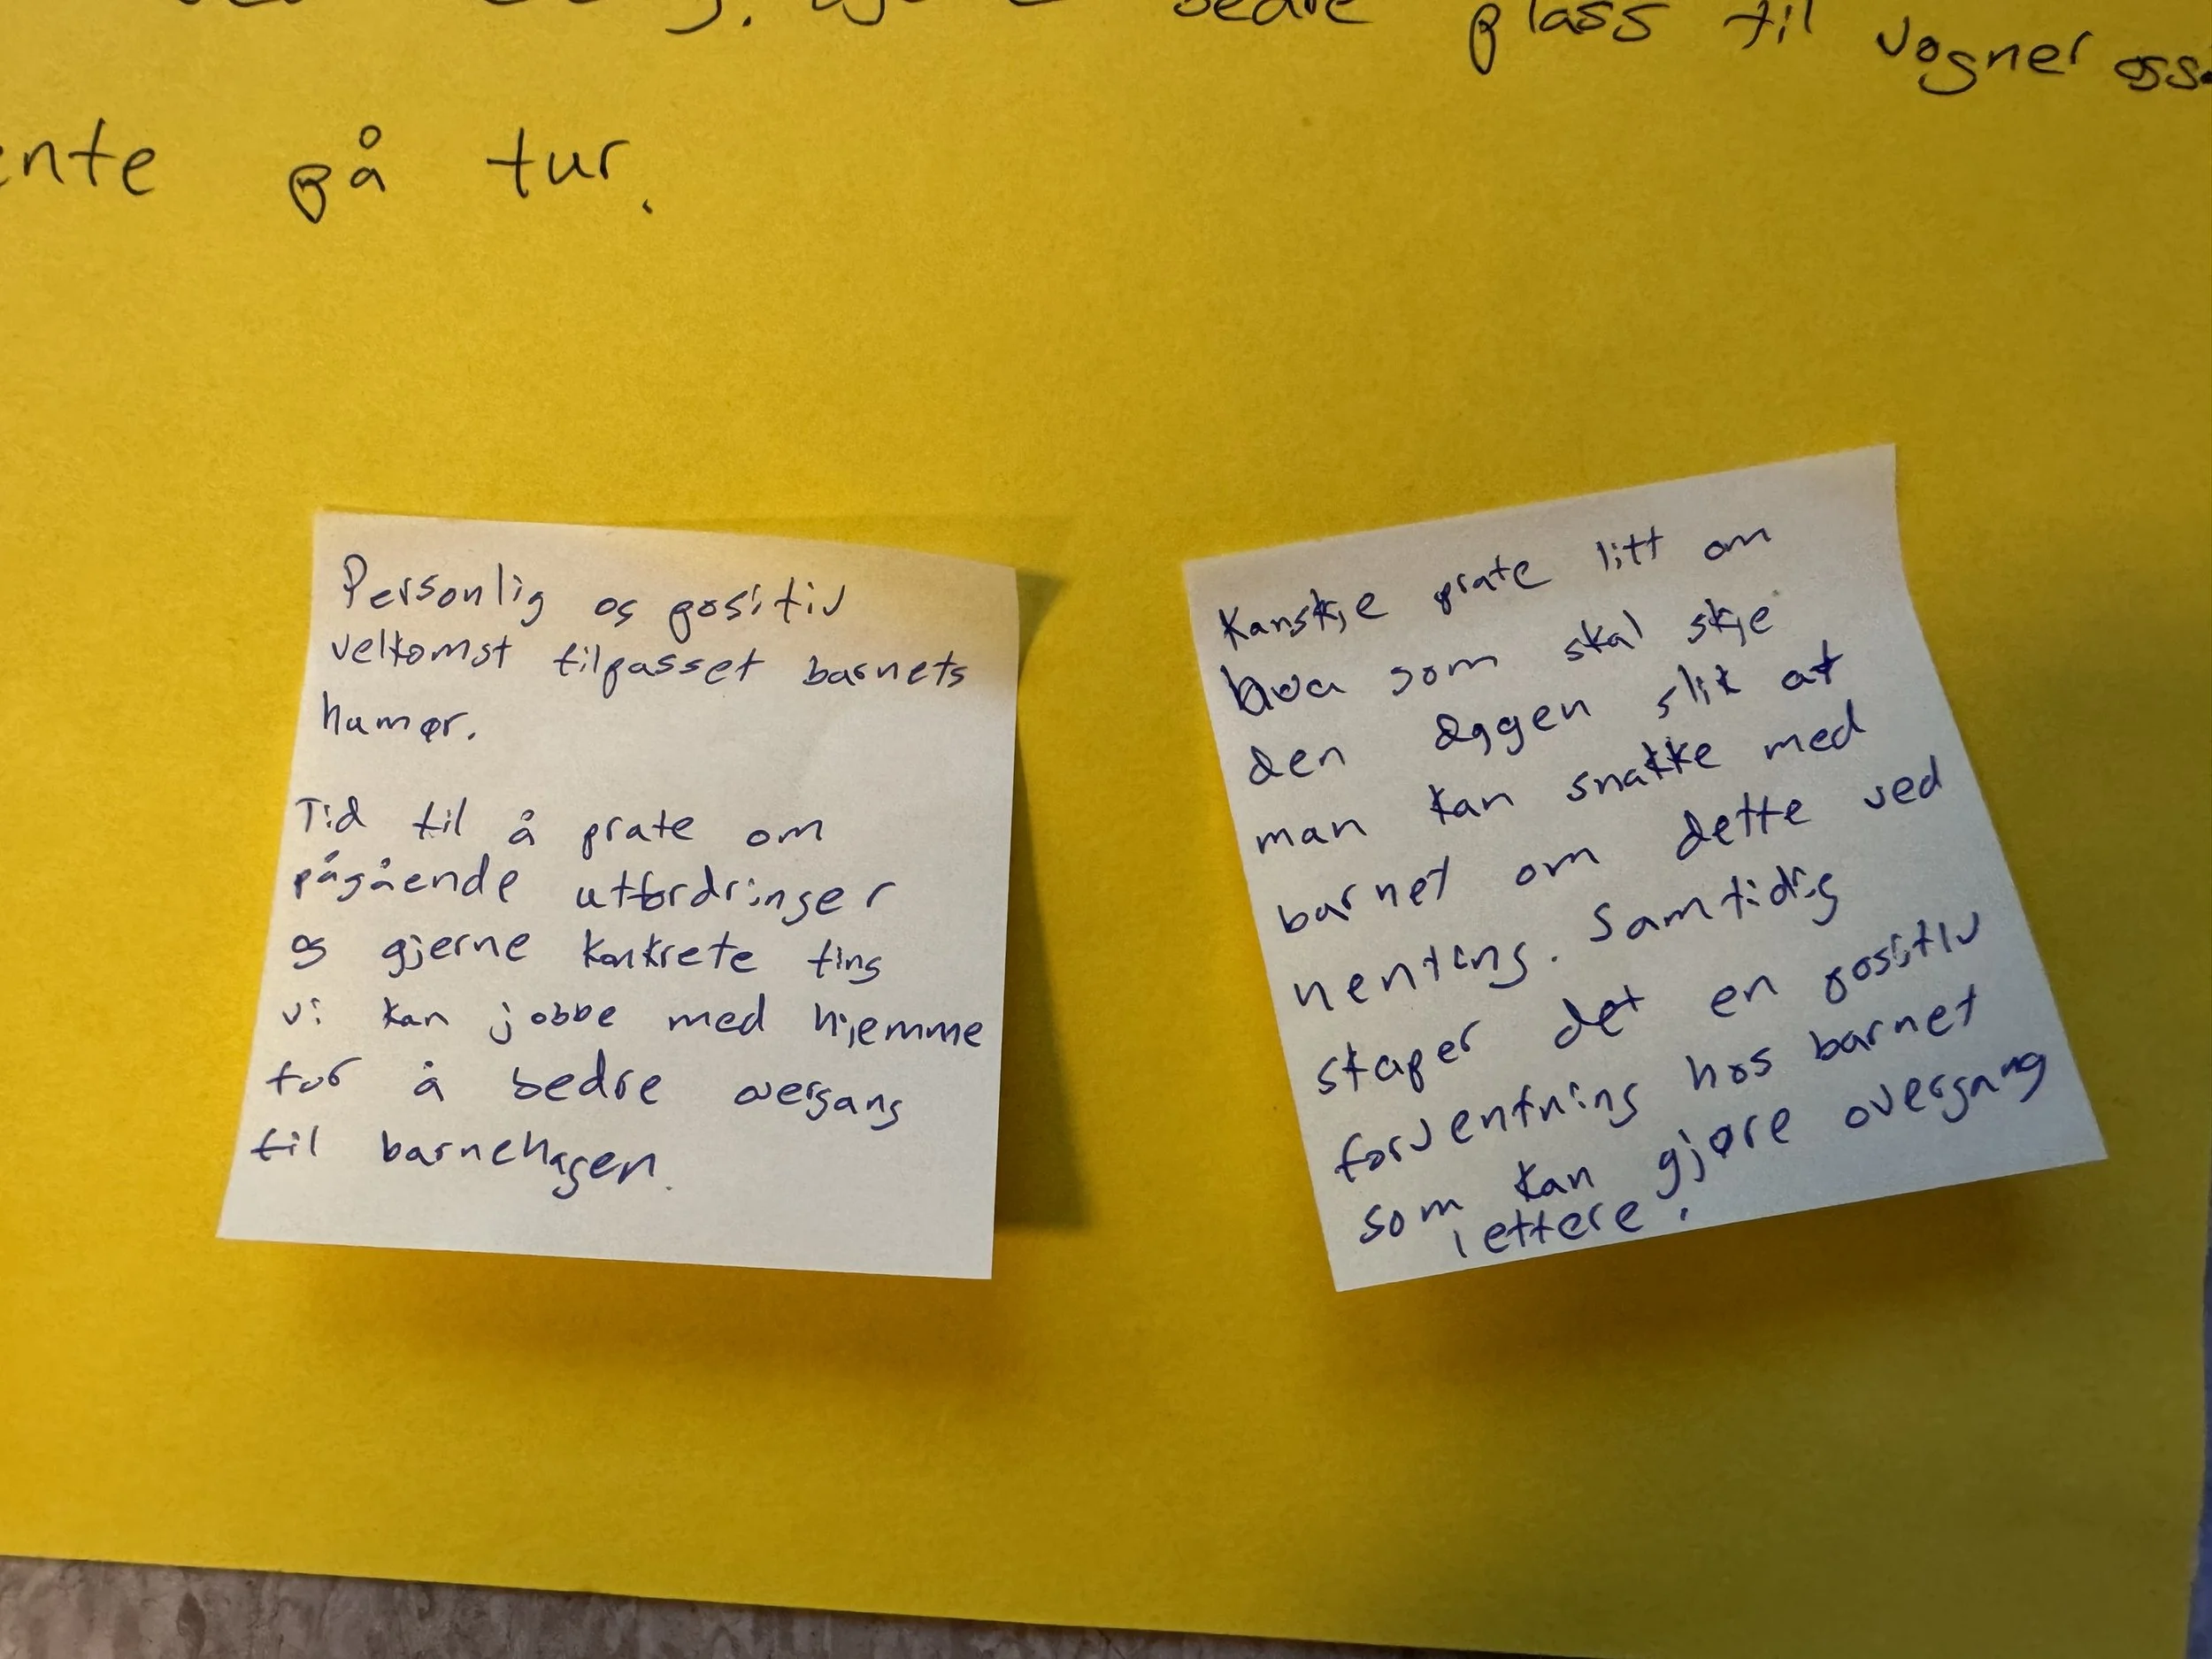 bedre plass til vogner
på tur.
Personlig og positiv
velkomst tilpasset barnets
humør.
Tid til å prate om
pågående utfordringer
og gjerne konkrete ting
vi kan jobbe med hjemme
for å bedre overgang
til barnehagen.
Kanskje prate litt om
hva som skal skje
den dagen slik at
man kan snakke med
barnet om dette ved
henting. Samtidig
skaper det en positiv
forventning hos barnet
som kan gjøre overgang
lettere.